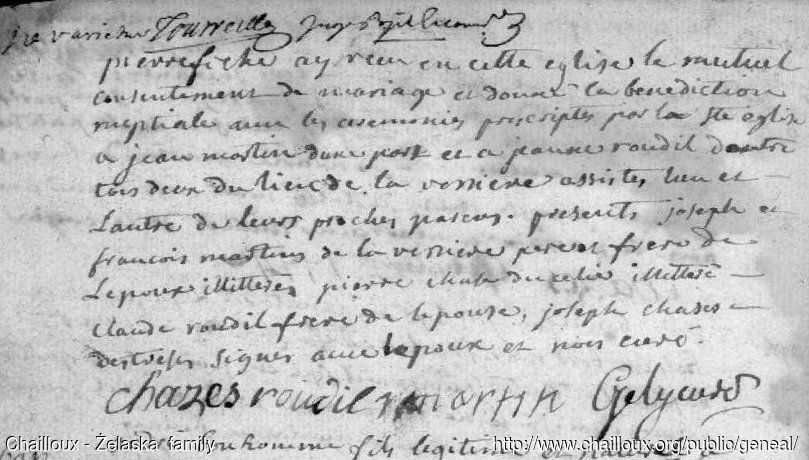 Tourreille
pierrefiche ay recu en cette eglise le mutuel
consentement de mariage et donné la benediction
nuptiale avec les ceremonies prescriptes par la ste eglise
a jean martin dune part et a jeanne roudil dautre
tous deux du lieu de la verriere assistes lun et
Lautre de leurs proches parens. presents joseph et
francois martins de la verriere pere et frere de
Lepoux illitterés, pierre chat du illitteré
claude roudil frere de lepouse, joseph chazes
signes avec lepoux et nous curé.
chazes roudil martin Gely curé
bonhomme fils legitime
Chailloux - Żelaska family
http://www.chailloux.org/public/geneal/